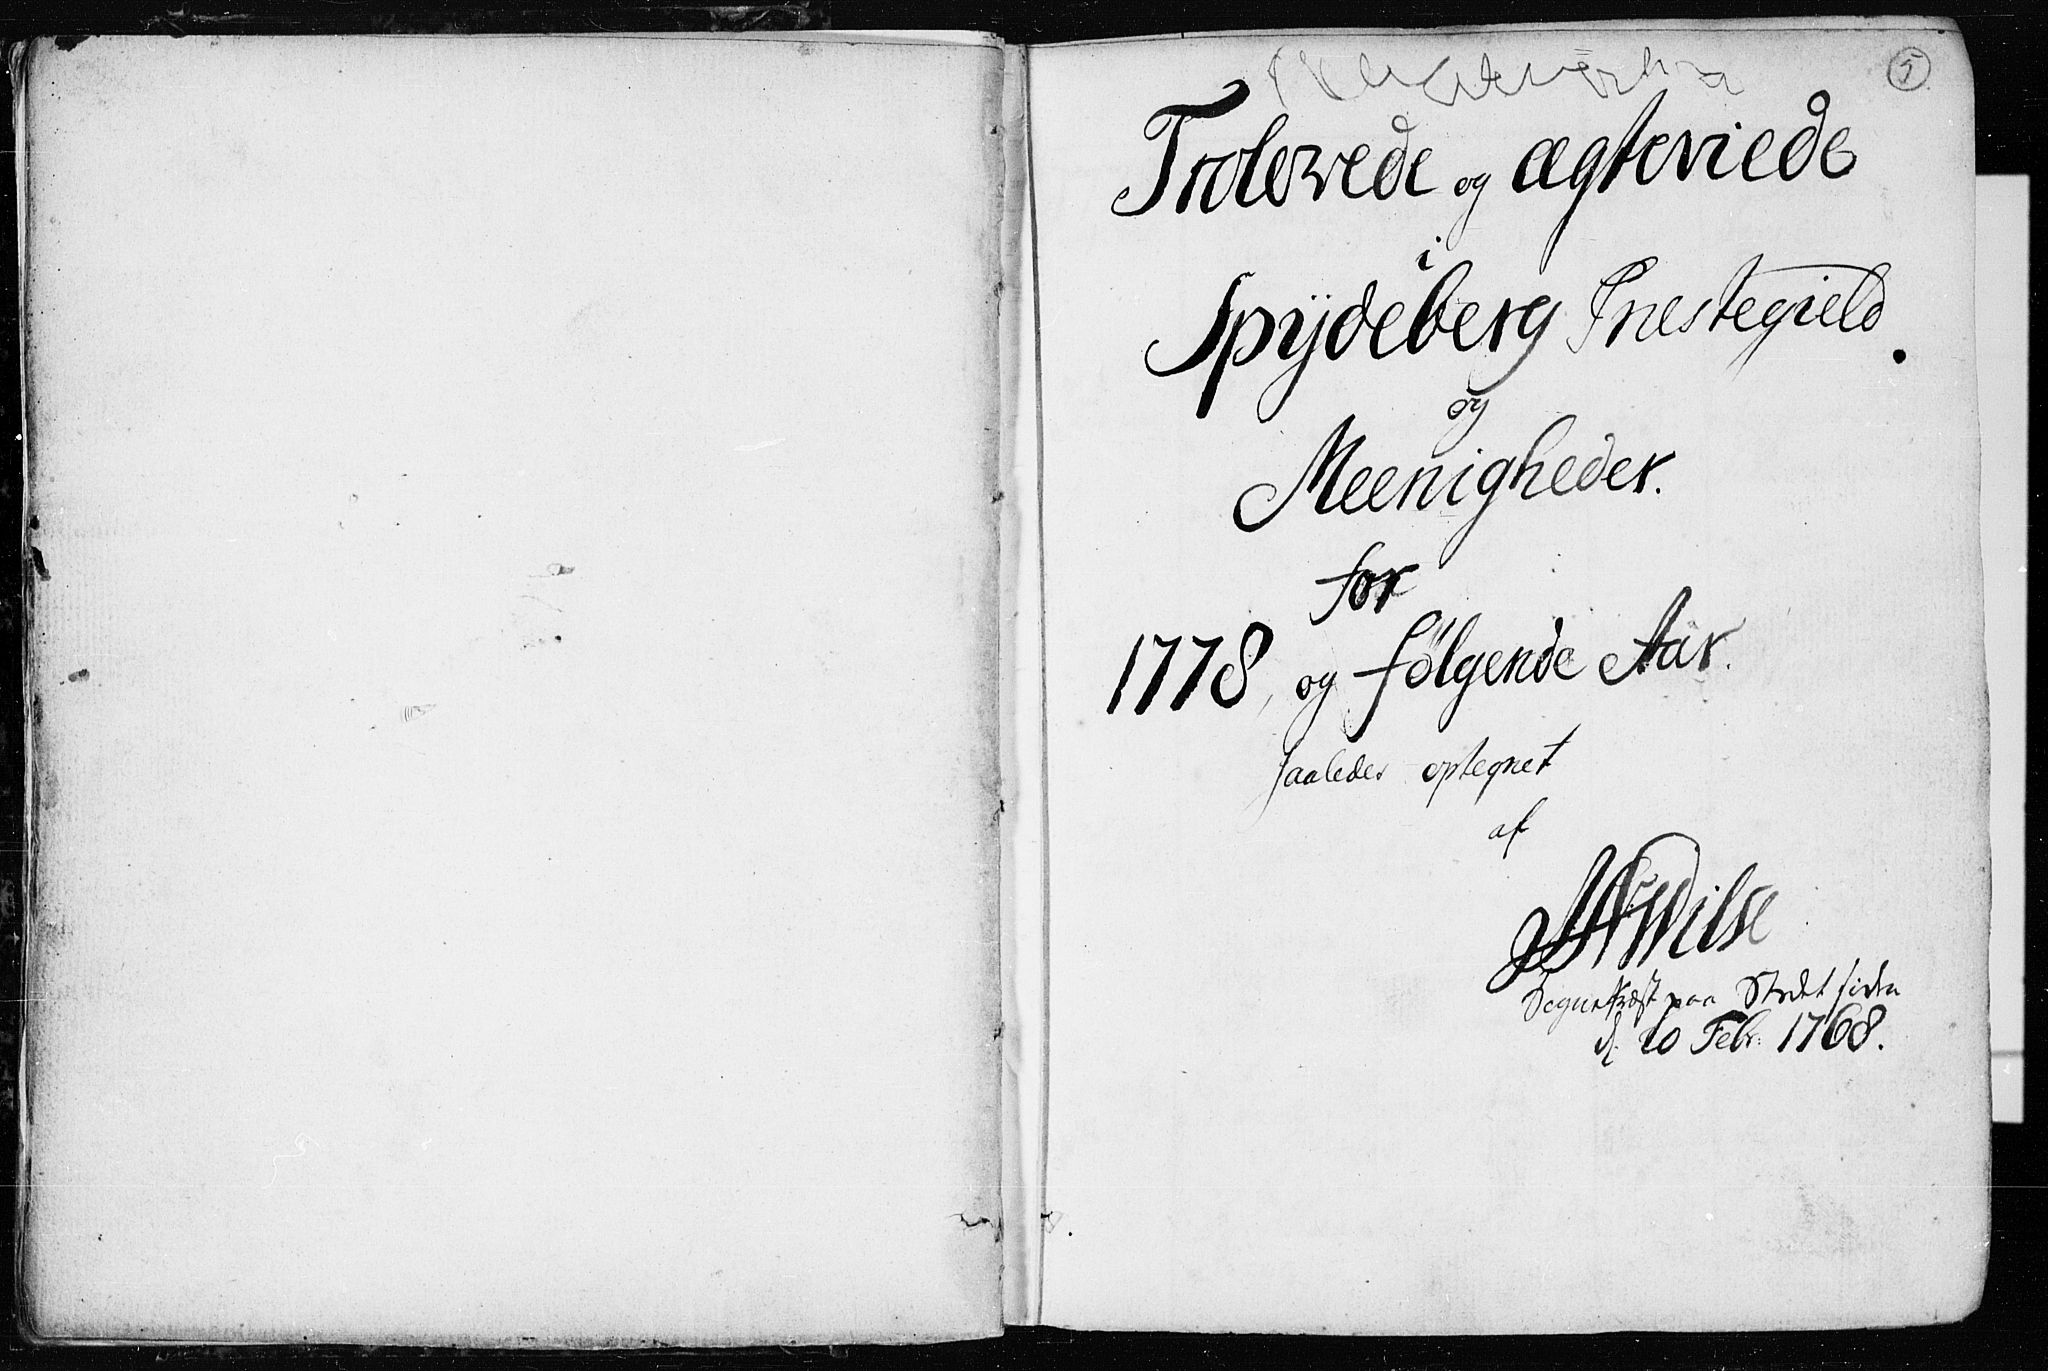 5
Trolovede og ægteviede
i
Spydeberg Præstegield.
og
Meenigheder.
for
1778, og følgende Aar.
saaledes optegnet
af
JNWilse
Sognepræst paa Stedet siden
d. 20 Febr. 1768.